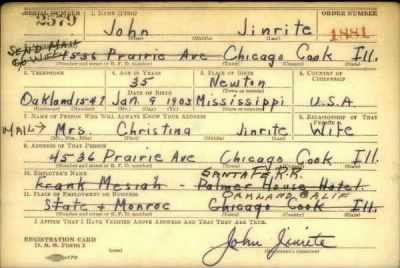 SERIAL NUMBER 1. NAME (Print) ORDER NUMBER
2579 John Jinrite 1881
(First) (Middle) (Last)
SEND MAIL TO WIFE
4536 Prairie Ave Chicago Cook Ill.
(Number and street or R. F. D. number) (Town) (County) (State)
3. TELEPHONE 4. AGE IN YEARS 5. PLACE OF BIRTH 6. COUNTRY OF CITIZENSHIP
35 Newton
DATE OF BIRTH (Town or county)
Oakland 1547 Jan. 9 1905 Mississippi U.S.A.
(Exchange) (Number) (Mo.) (Day) (Yr.) (State or country)
7. NAME OF PERSON WHO WILL ALWAYS KNOW YOUR ADDRESS 8. RELATIONSHIP OF THAT PERSON
MAIL→ Mrs. Christina Jinrite Wife
(Mr., Mrs., Miss) (First) (Middle) (Last)
9. ADDRESS OF THAT PERSON
4536 Prairie Ave Chicago Cook Ill.
(Number and street or R. F. D. number) (Town) (County) (State)
10. EMPLOYER'S NAME SANTA FE R.R.
Frank Mesiah - Palmer House Hotel
11. PLACE OF EMPLOYMENT OR BUSINESS OAKLAND CALIF
State & Monroe Chicago Cook Ill.
(Number and street or R. F. D. number) (Town) (County) (State)
I AFFIRM THAT I HAVE VERIFIED ABOVE ANSWERS AND THAT THEY ARE TRUE.
REGISTRATION CARD
D. S. S. Form 1
John Jinrite
(Registrant's signature)